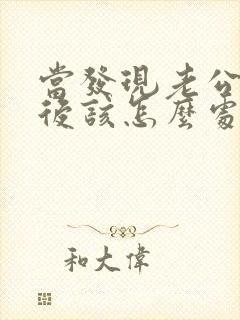 當發現老公
後該怎麼處
和大偉